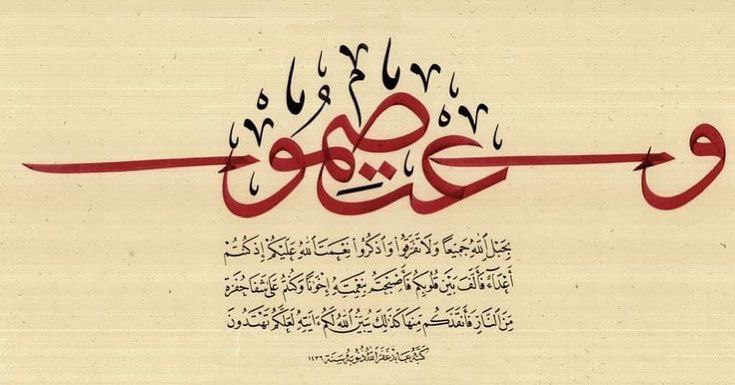 واعتصموا
بِحَبْلِ ٱللَّهِ جَمِيعًا وَلَا تَفَرَّقُوا وَٱذْكُرُوا نِعْمَتَ ٱللَّهِ عَلَيْكُمْ إِذْ كُنْتُمْ
أَعْدَآءً فَأَلَّفَ بَيْنَ قُلُوبِكُمْ فَأَصْبَحْتُمْ بِنِعْمَتِهِ إِخْوَٰنًا وَكُنْتُمْ عَلَىٰ شَفَا حُفْرَةٍ
مِنَ ٱلنَّارِ فَأَنْقَذَكُمْ مِنْهَا كَذَٰلِكَ يُبَيِّنُ ٱللَّهُ لَكُمْ ءَايَٰتِهِ لَعَلَّكُمْ تَهْتَدُونَ
كتبه عابد غفر الله ذنوبه سنة ١٤٣٦